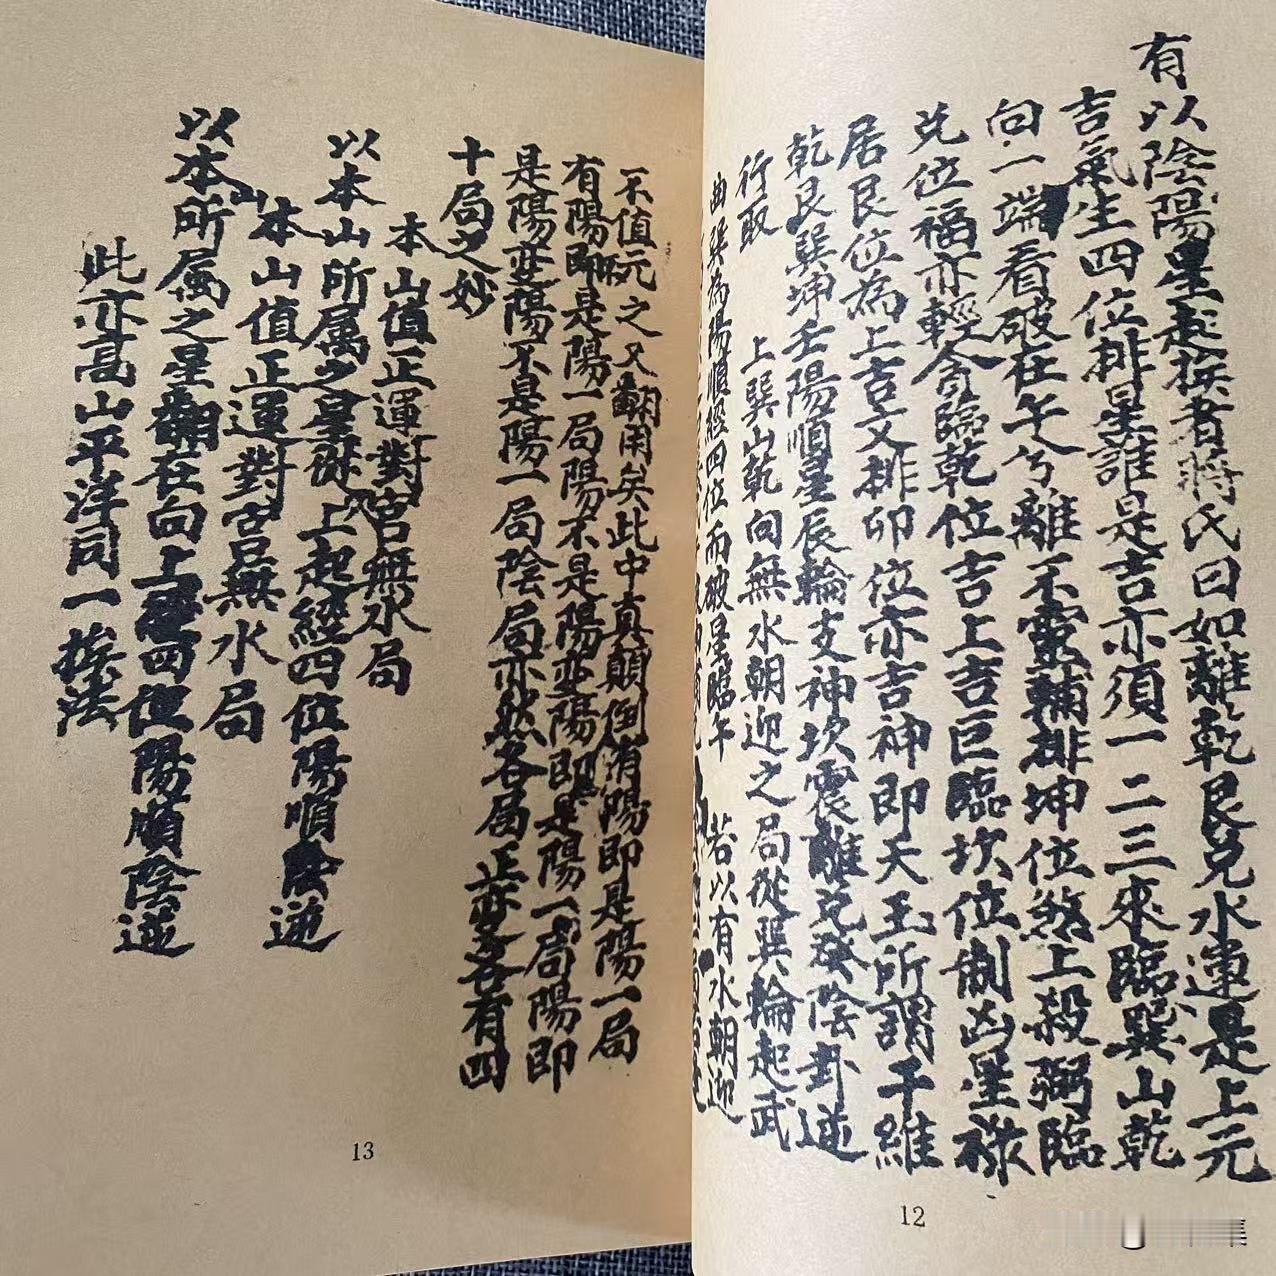 有以陰陽星起挨者蔣氏曰如離乾艮兌水運是上元
吉氣生四位排星誰是吉亦須一二三來臨巽山乾
向一端看破在午兮離不靈輔排坤位煞上殺弼臨
兌位福亦輕貪臨乾位吉上吉巨臨坎位制凶星祿
居艮位為上吉文排卯位亦吉神即天玉所謂干維
乾艮巽坤壬陽順星辰輪支神坎震離兌癸陰卦逆
行取 上巽山乾向無水朝迎之局從巽輪起武
曲巽為陽順經四位而破星臨午 若以有水朝迎
12
不值元之又翻用矣此中真顛倒消陽即是陽一局
有陽即是陽一局陽不是陽变陽即是陽一局陽即
是陽变陽不是陽一局陰局亦然各局正变各有四
十局之妙
本山值正運對宮無水局
以本山所属之星 上起經四位陽順陰逆
本山值正運對宮無水局
以本山所属之星翻在向上 四位陽順陰逆
此亦高山平洋同一挨法
13